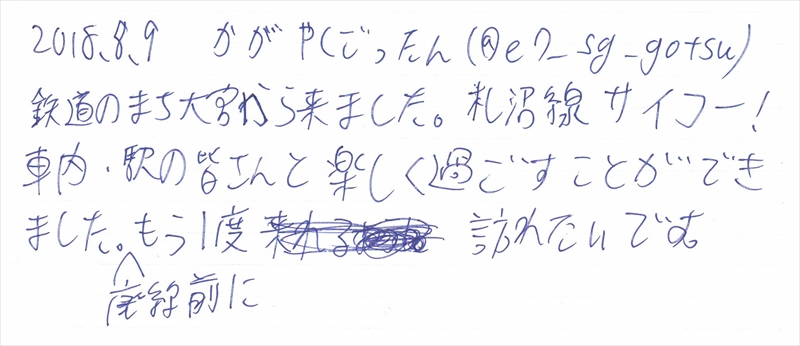 2018.8.9 かがやくごったん(@e7_sg_gotsu)
鉄道のまち大宮から来ました。札沼線サイコー!
車内・駅の皆さんと楽しく過ごすことができ
ました。もう1度 訪れたいです。
廃線前に